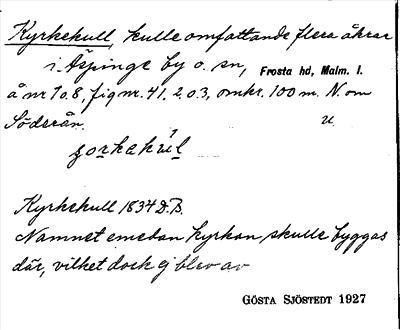 Kyrkekull, kulle omfattande flera åkrar
i Äspinge by o. sn, Frosta hd, Malm. l.
å nr 7 o. 8, fig nr. 41, 2 o. 3, omkr. 100 m. N. om
Söderån. u.
Kyrkekull 1834 D.B.
Namnet emedan kyrkan skulle byggas
där, vilket dock ej blev av
GÖSTA SJÖSTEDT 1927